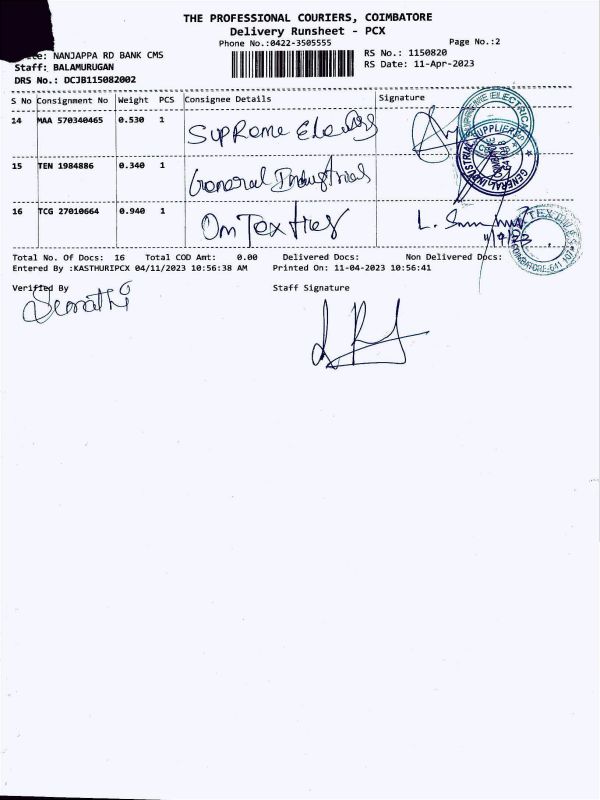 THE PROFESSIONAL COURIERS, COIMBATORE
Delivery Runsheet - PCX
Phone No.:0422-3505555 Page No.:2
NANJAPPA RD BANK CMS RS No.: 1150820
Staff: BALAMURUGAN RS Date: 11-Apr-2023
DRS No.: DCJB115082002
S No Consignment No Weight PCS Consignee Details Signature
14 MAA 570340465 0.530 1 Supreme
15 TEN 1984886 0.340 1 General Industrial
16 TCG 27010664 0.940 1 Om Tex
Total No. Of Docs: 16 Total COD Amt: 0.00 Delivered Docs: Non Delivered Docs:
Entered By :KASTHURIPCX 04/11/2023 10:56:38 AM Printed On: 11-04-2023 10:56:41
Verified By Staff Signature